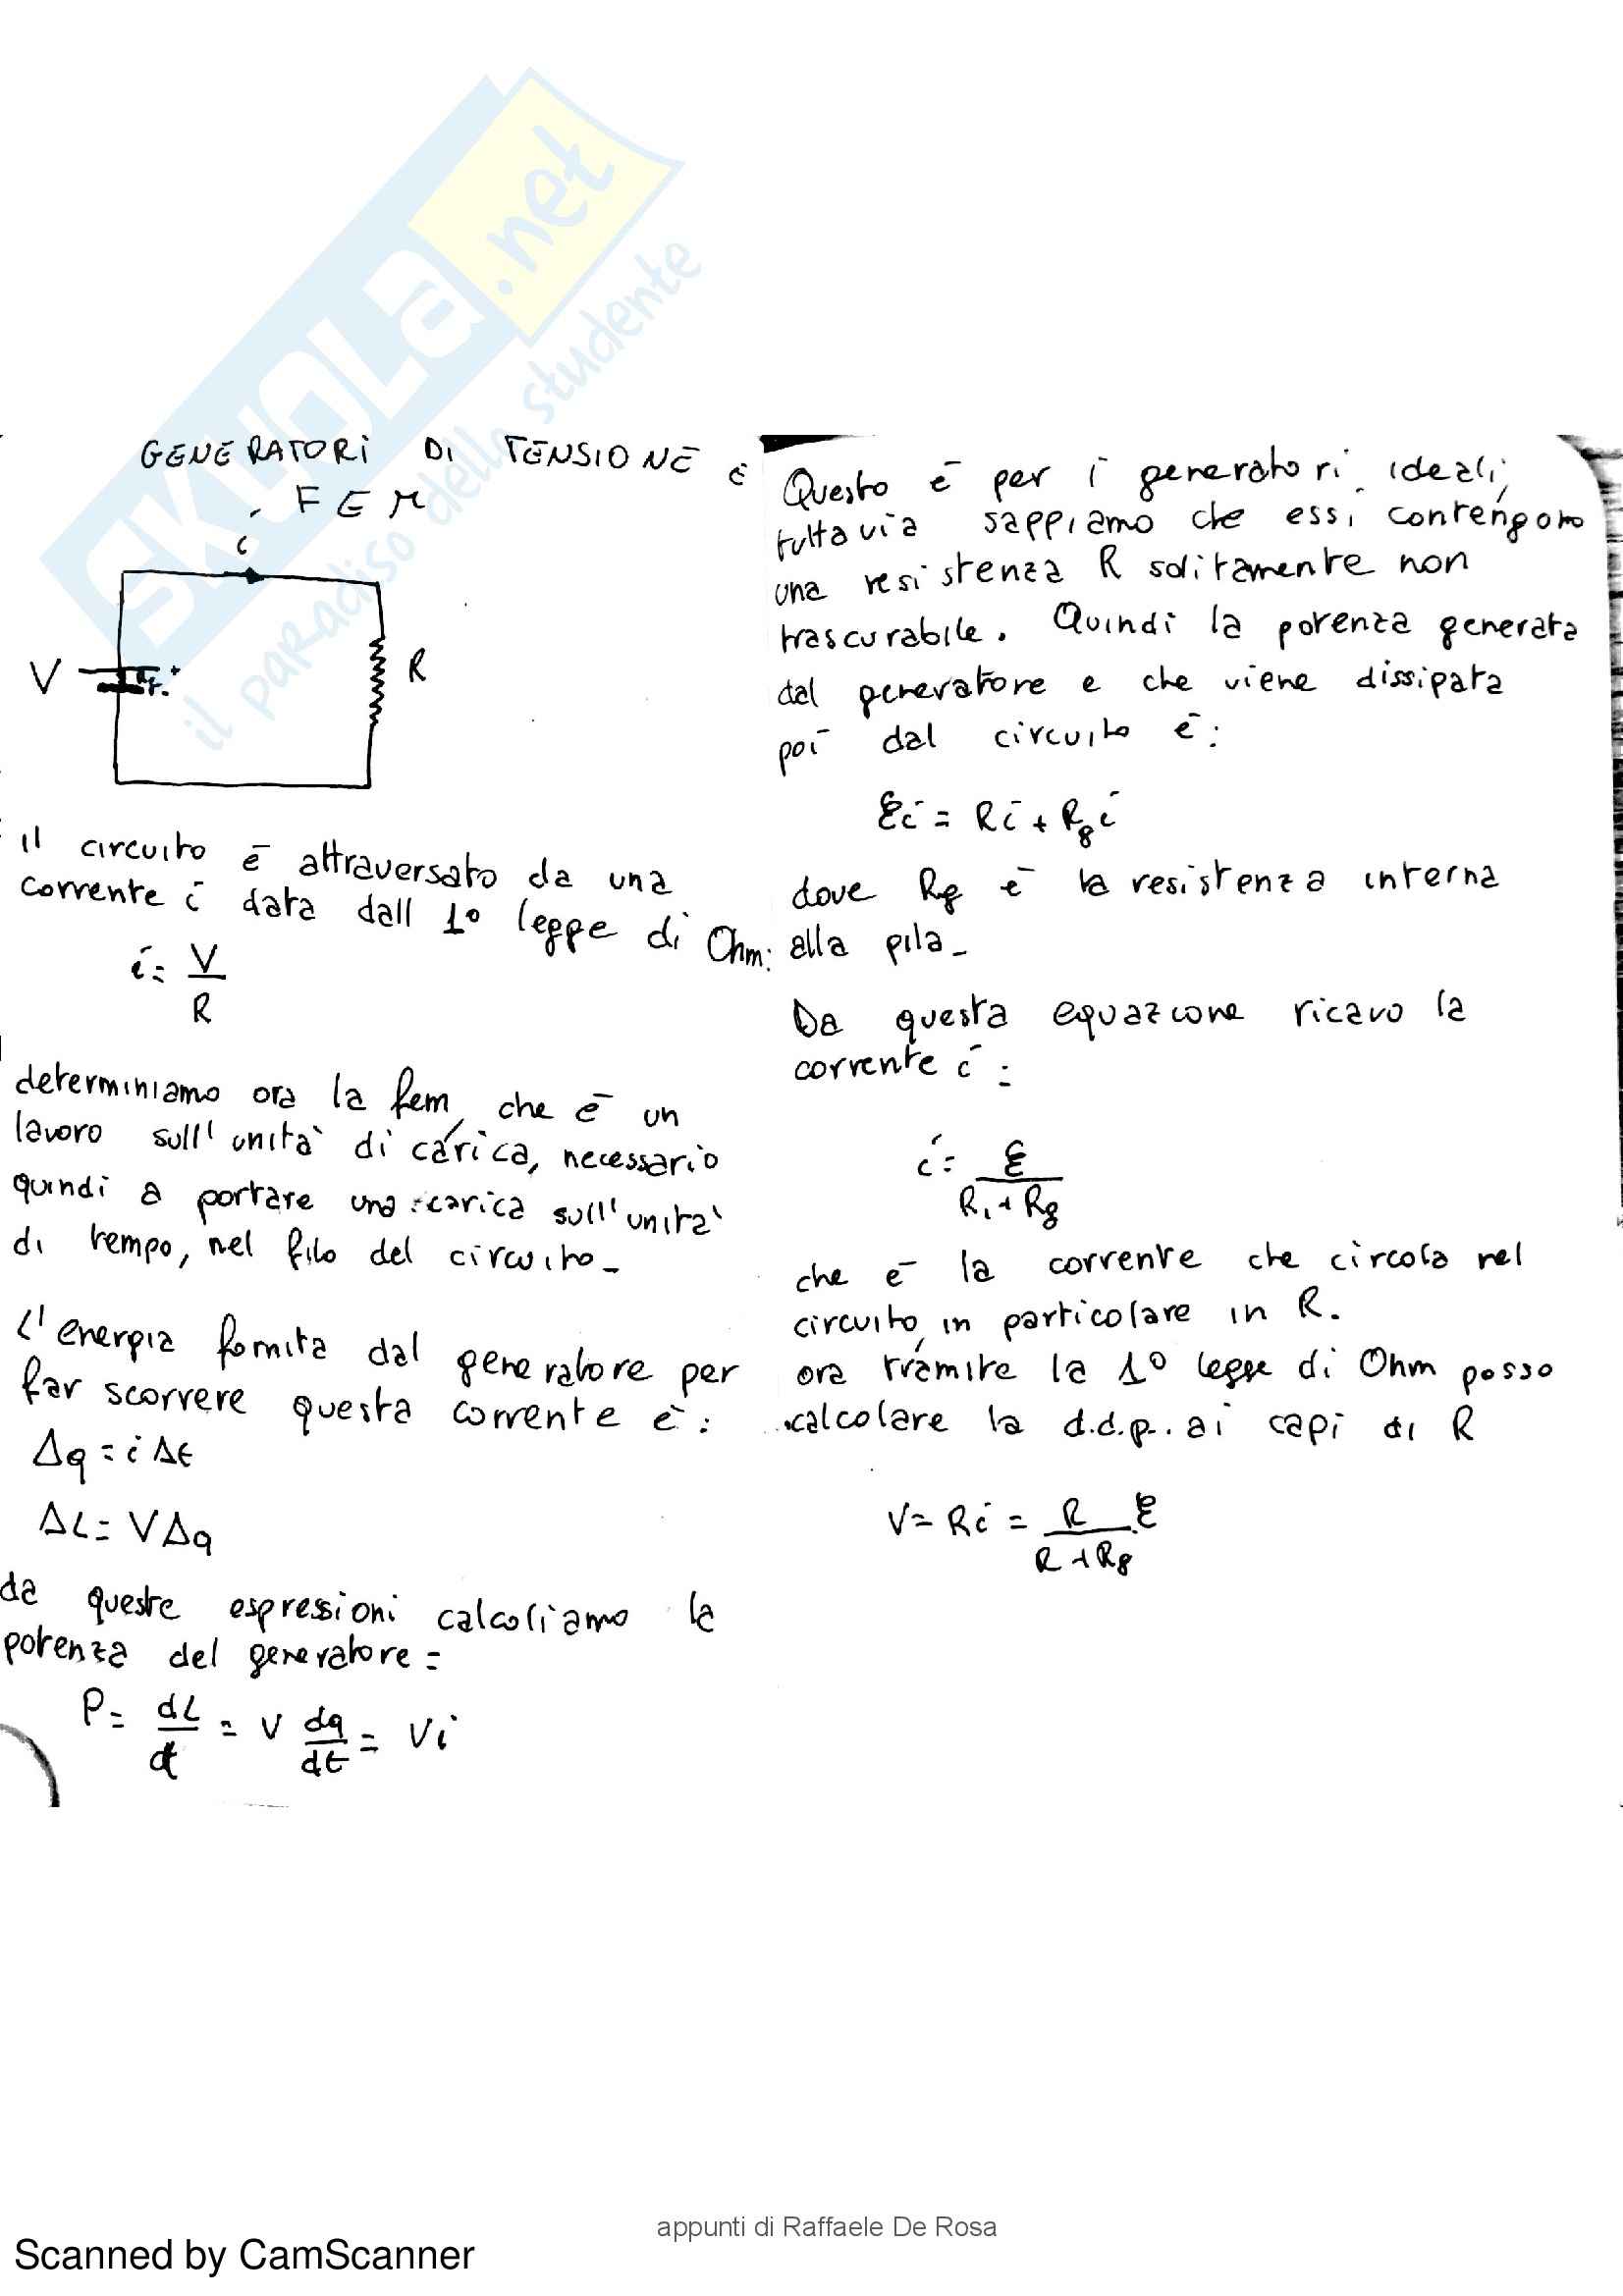 SKUOLA.net
il paradiso dello studente
GENERATORI DI TENSIONE E
FEM
i
V
R
il circuito è attraversato da una
corrente i data dall 1° legge di Ohm:
i = V/R
determiniamo ora la fem, che è un
lavoro sull'unità di carica, necessario
quindi a portare una carica sull'unità
di tempo, nel filo del circuito_
L'energia fornita dal generatore per
far scorrere questa corrente è:
Δq = i Δt
ΔL = VΔq
da queste espressioni calcoliamo la
potenza del generatore =
P = dL/dt = V dq/dt = Vi
Questo è per i generatori ideali,
tuttavia sappiamo che essi contengono
una resistenza R solitamente non
trascurabile. Quindi la potenza generata
dal generatore e che viene dissipata
poi dal circuito è:
Ɛi = Ri + Rgi
dove Rg è la resistenza interna
alla pila_
Da questa equazione ricavo la
corrente i =
i = Ɛ/R1+Rg
che è la corrente che circola nel
circuito, in particolare in R.
ora tramite la 1° legge di Ohm posso
calcolare la d.d.p. ai capi di R
V = Ri = R/R+Rg Ɛ
appunti di Raffaele De Rosa
Scanned by CamScanner